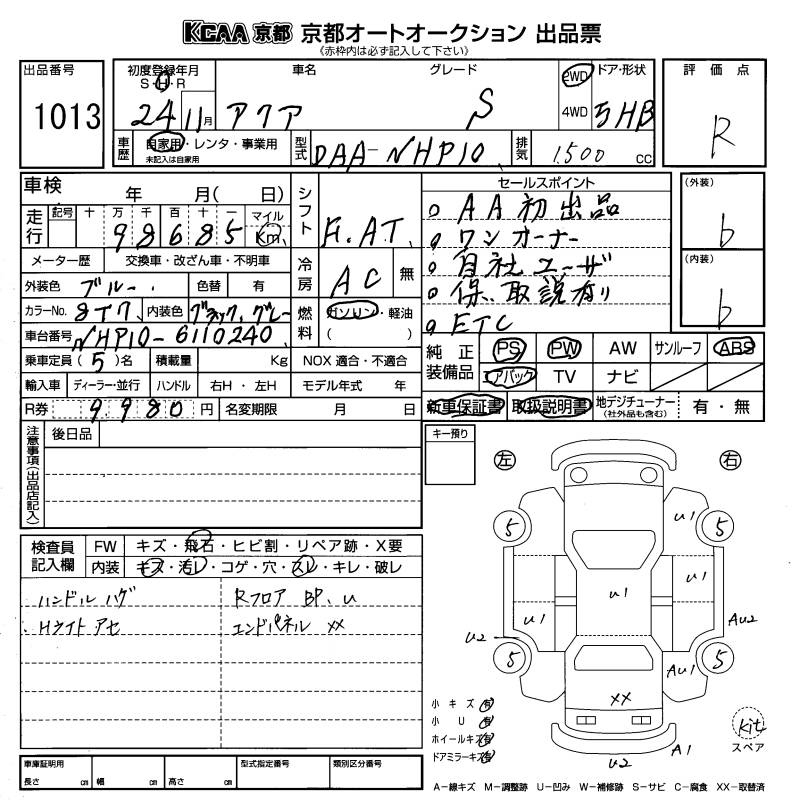 KCAA 京都 京都オートオークション 出品票
《赤枠内は必ず記入して下さい》
出品番号 1013
初度登録年月 S・H・R 24 11月
車名 アクア
グレード S
2WD 4WD
ドア・形状 5HB
評価点 R
車歴 自家用・レンタ・事業用 未記入は自家用
型式 DAA-NHP10
排気 1500 cc
車検 年 月( 日)
走行 記号 十 万 千 百 十 一 マイル Km
98685
シフト F.AT
セールスポイント
AA初出品
ワンオーナー
自社ユーザ
保、取説有り
ETC
(外装) b
(内装) b
メーター歴 交換車・改ざん車・不明車
冷房 AC 無
外装色 ブルー 色替 有
カラーNo. 8T7 内装色 ブラック、グレー
燃料 ガソリン・軽油 ( )
車台番号 NHP10-6110240
純正装備品 PS PW AW サンルーフ ABS
エアバック TV ナビ
乗車定員(5)名 積載量 Kg NOX適合・不適合
輸入車 ディーラー・並行 ハンドル 右H・左H モデル年式 年
新車保証書 取扱説明書 地デジチューナー(社外品も含む) 有・無
R券 9980円 名変期限 月 日
注意事項(出品店記入) 後日品
キー預り
左 右
検査員記入欄 FW キズ・飛石・ヒビ割・リペア跡・X要
内装 キズ・汚レ・コゲ・穴・スレ・キレ・破レ
ハンドル ハゲ Rフロア BP、U
Hライト アセ エンドパネル XX
5 U1 5
U1 U1
U1 U2 AU2
5 AU1 5
XX
U2 A1
小キズ 有
小U 有
ホイールキズ 有
ドアミラーキズ 有
kit スペア
車庫証明用 長さ cm 幅 cm 高さ cm 型式指定番号 類別区分番号
A-線キズ M-調整跡 U-凹み W-補修跡 S-サビ C-腐食 XX-取替済